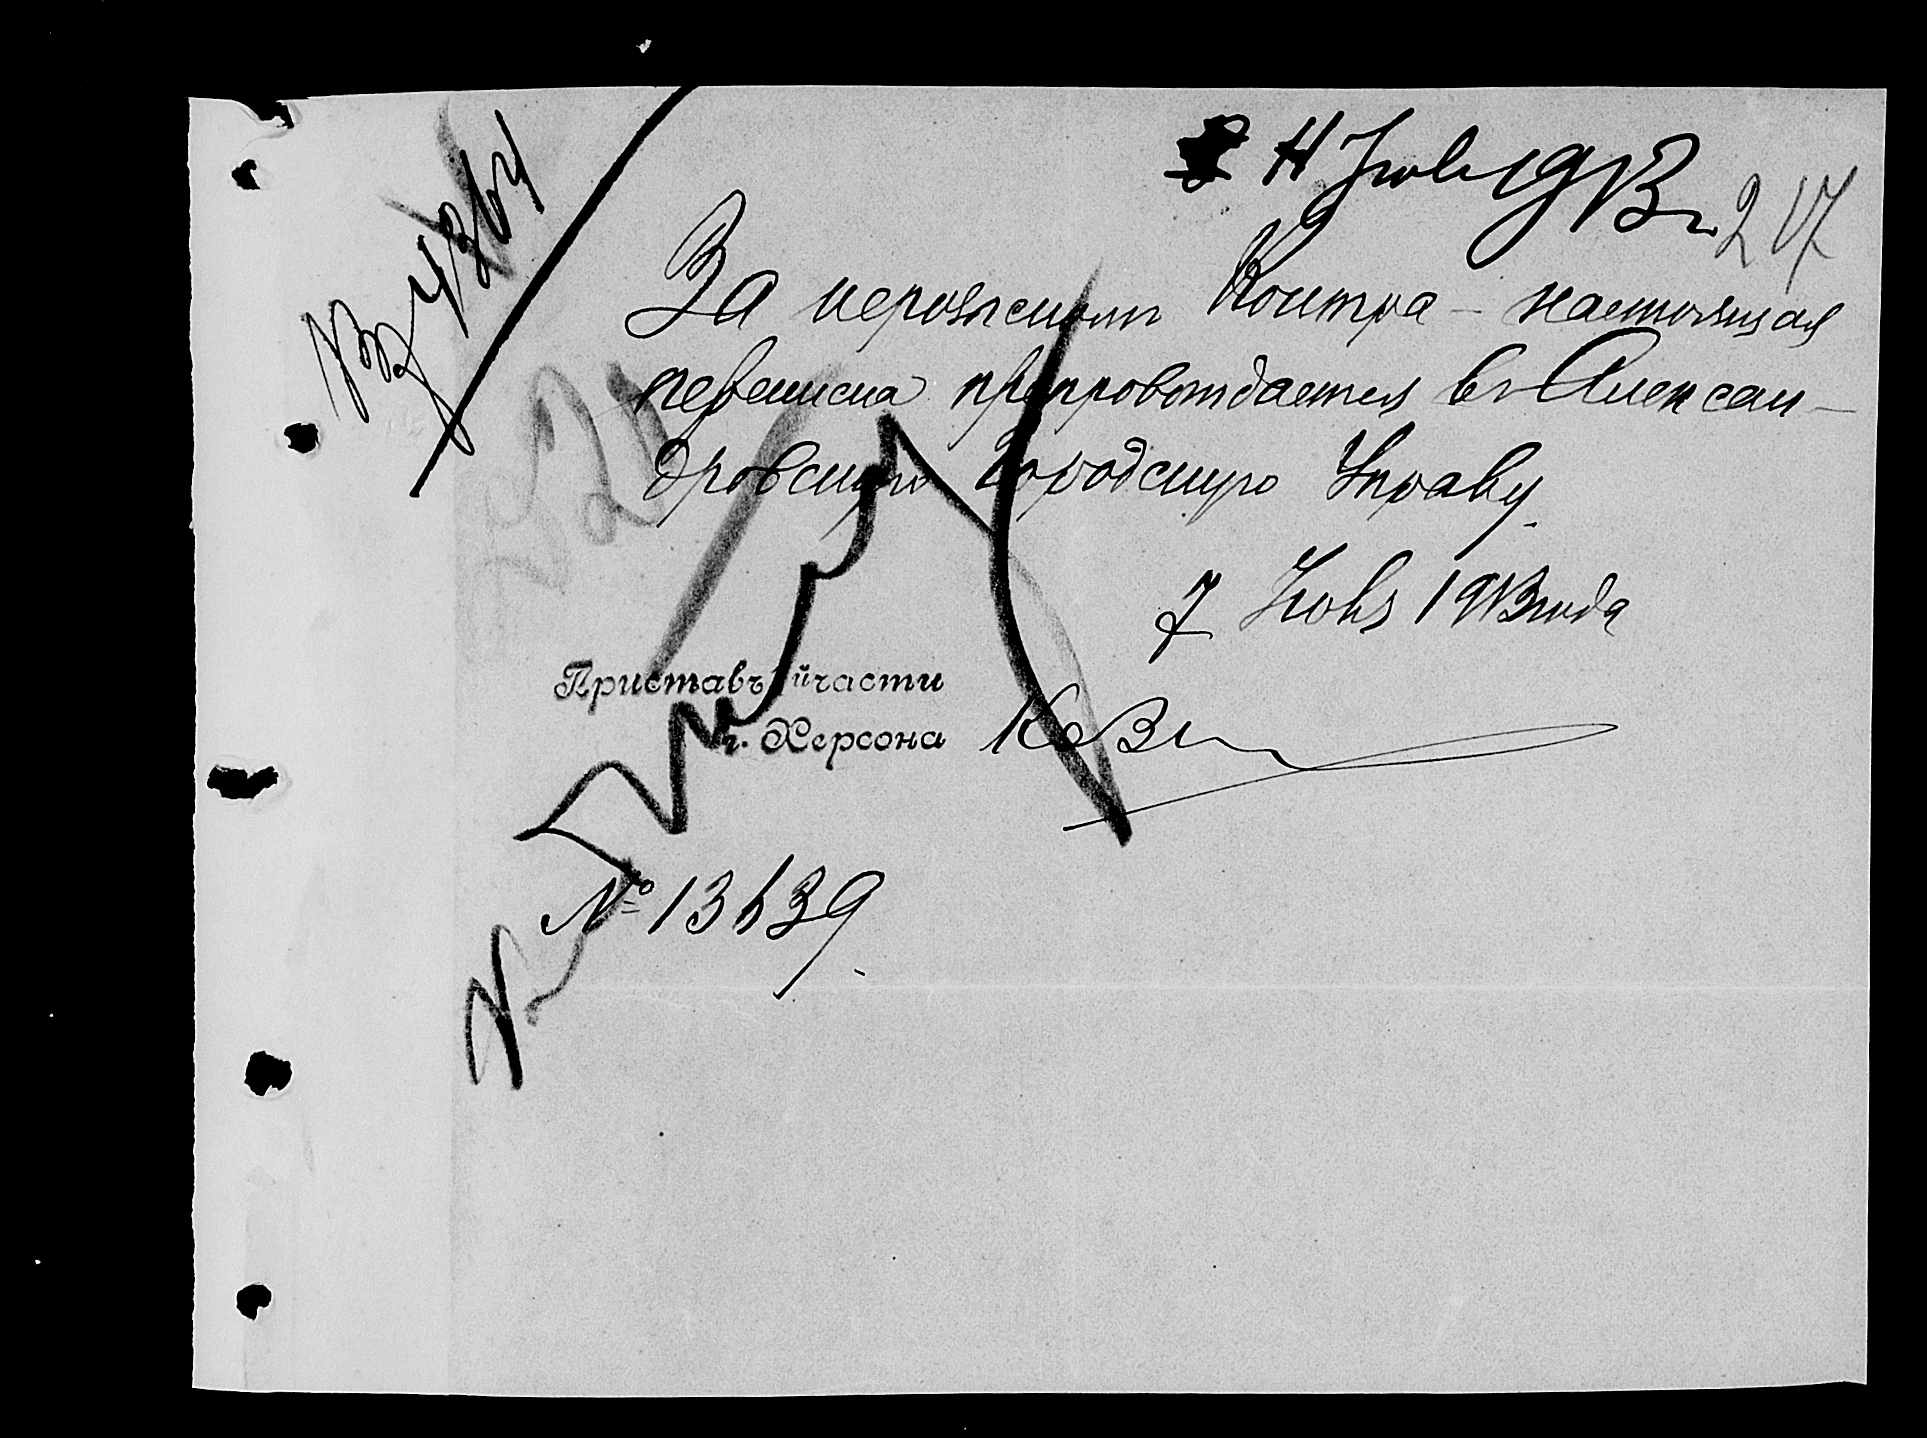 11 Июля 1913 г.
217
Вх 4364
За нерозыскомъ Контра - настоящая
переписка препровождается въ Алексан-
дровскую Городскую Управу.
7 Июля 1913 года
Приставъ й части
г. Херсона
№ 13639.